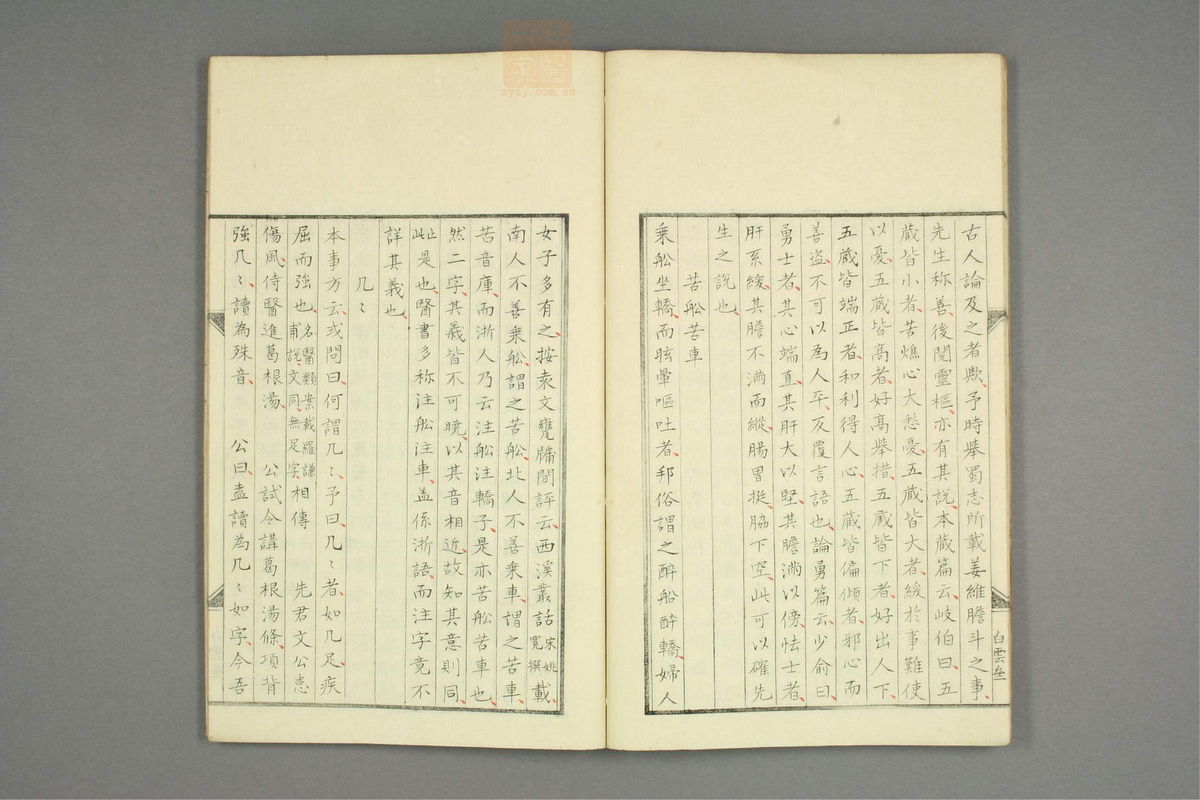 古人論及之者歟予時舉蜀志所載姜維膽斗之事
先生称善後閱靈樞亦有其說本蔵篇云岐伯曰五
蔵皆小者苦燋心大愁憂五蔵皆大者緩於事難使
以憂五蔵皆高者好高舉措五蔵皆下者好出人下
五蔵皆端正者和利得人心五蔵皆偏傾者邪心而
善盗不可以為人平反覆言語也論勇篇云少俞曰
勇士者其心端直其肝大以堅其膽滿以傍怯士者
肝系緩其膽不滿而縱腸胃挺脇下空此可以確先
生之說也
苦舩苦車
乗舩坐轎而眩暈嘔吐者邦俗謂之酔船酔轎婦人
白雲
女子多有之按袁文甕牖間評云西溪叢話宋姚寬撰載
南人不善乗舩謂之苦舩北人不善乗車謂之苦車
苦音庫而浙人乃云注舩注轎子是亦苦舩苦車也
然二字其義皆不可曉以其音相近故知其意則同
止此是也醫書多称注舩注車盖係浙語而注字竟不
詳其義也
几〻
本事方云或問曰何謂几〻予曰几〻者如几足疾
屈而強也名醫類案載羅謙甫說文同無足字相傳 先君文公患
傷風侍醫進葛根湯 公試令講葛根湯條項背
強几〻讀為殊音 公曰盍讀為几〻如字今吾
zysj.com.cn